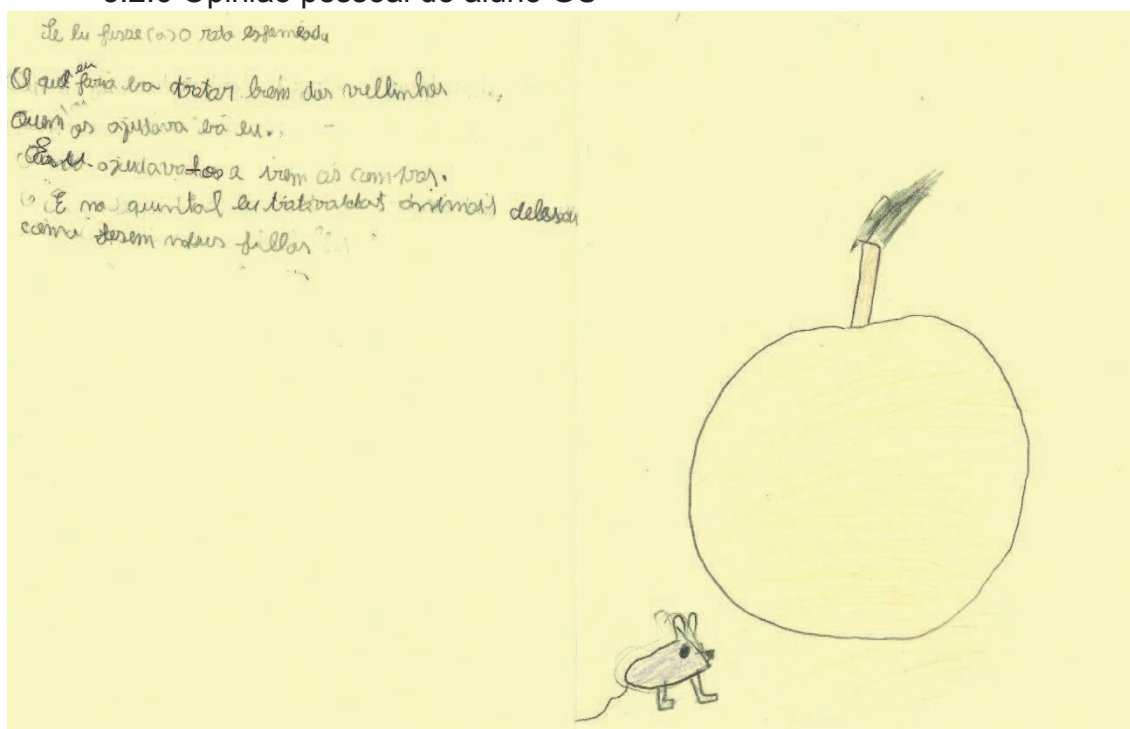 Opinião pessoal do aluno
Se eu fosse o rato esfomeado
O que eu faria era tratar bem dos vellinhos
Quem os ajudava era eu.
ajudavatos a irem as compras.
E no quintal eu animais deles
como fosem meus fillos